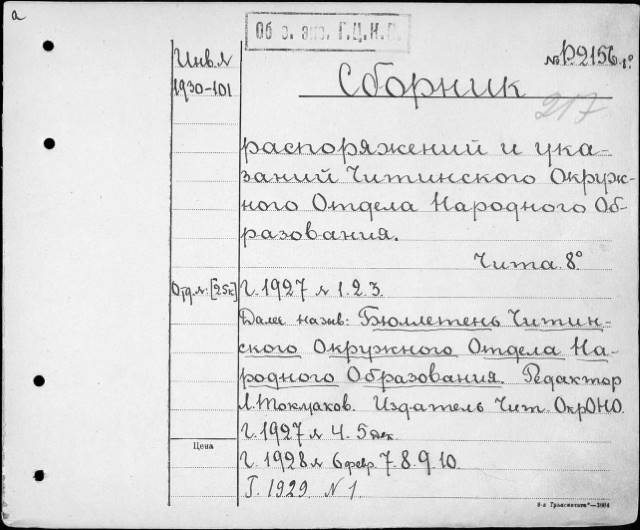 а
Об. экз. Г.Ц.К.П.
Инв. №
1930-101
№ Р.2156 1°
Сборник
217
распоряжений и ука-
заний Читинского Окруж-
ного Отдела Народного Об-
разования.
Чита 8°.
Отд. №: [25к]
Г. 1927 № 1. 2. 3.
Далее назыв: Бюллетень Читин-
ского Окружного Отдела На-
родного Образования. Редактор
Л. Токмаков. Издатель Чит. ОкрОНО.
Г. 1927 № 4. 5 дек.
Цена
Г. 1928 № 6 февр. 7. 8. 9. 10.
Г. 1929 № 1